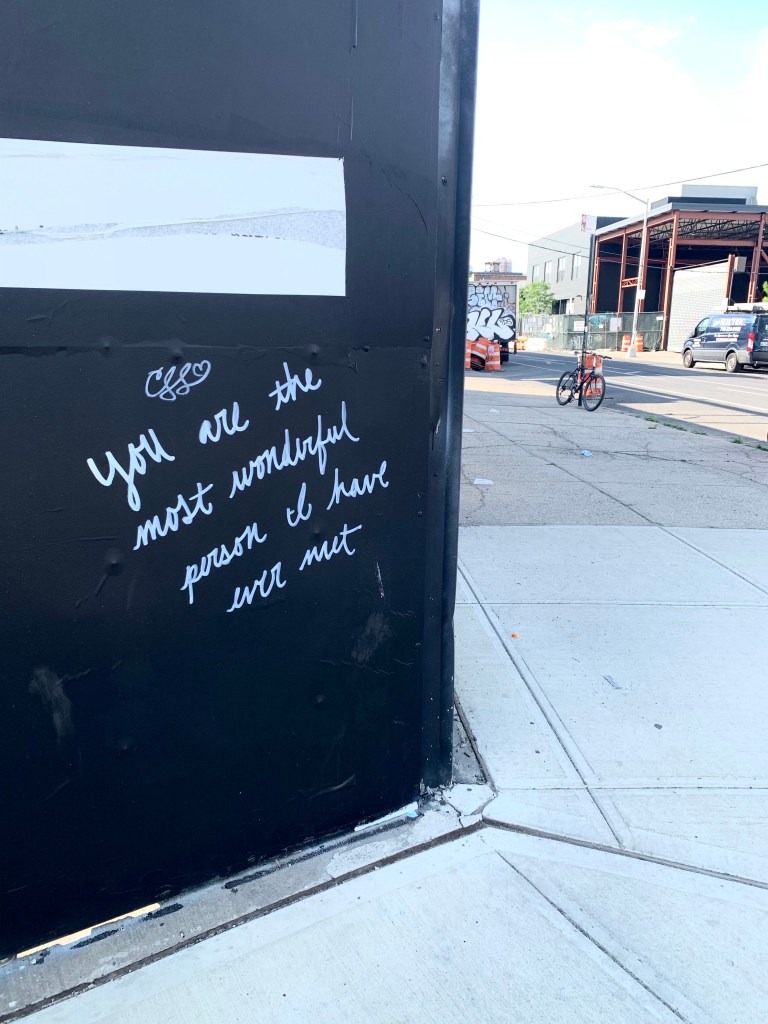 you are the
most wonderful
person I have
ever met